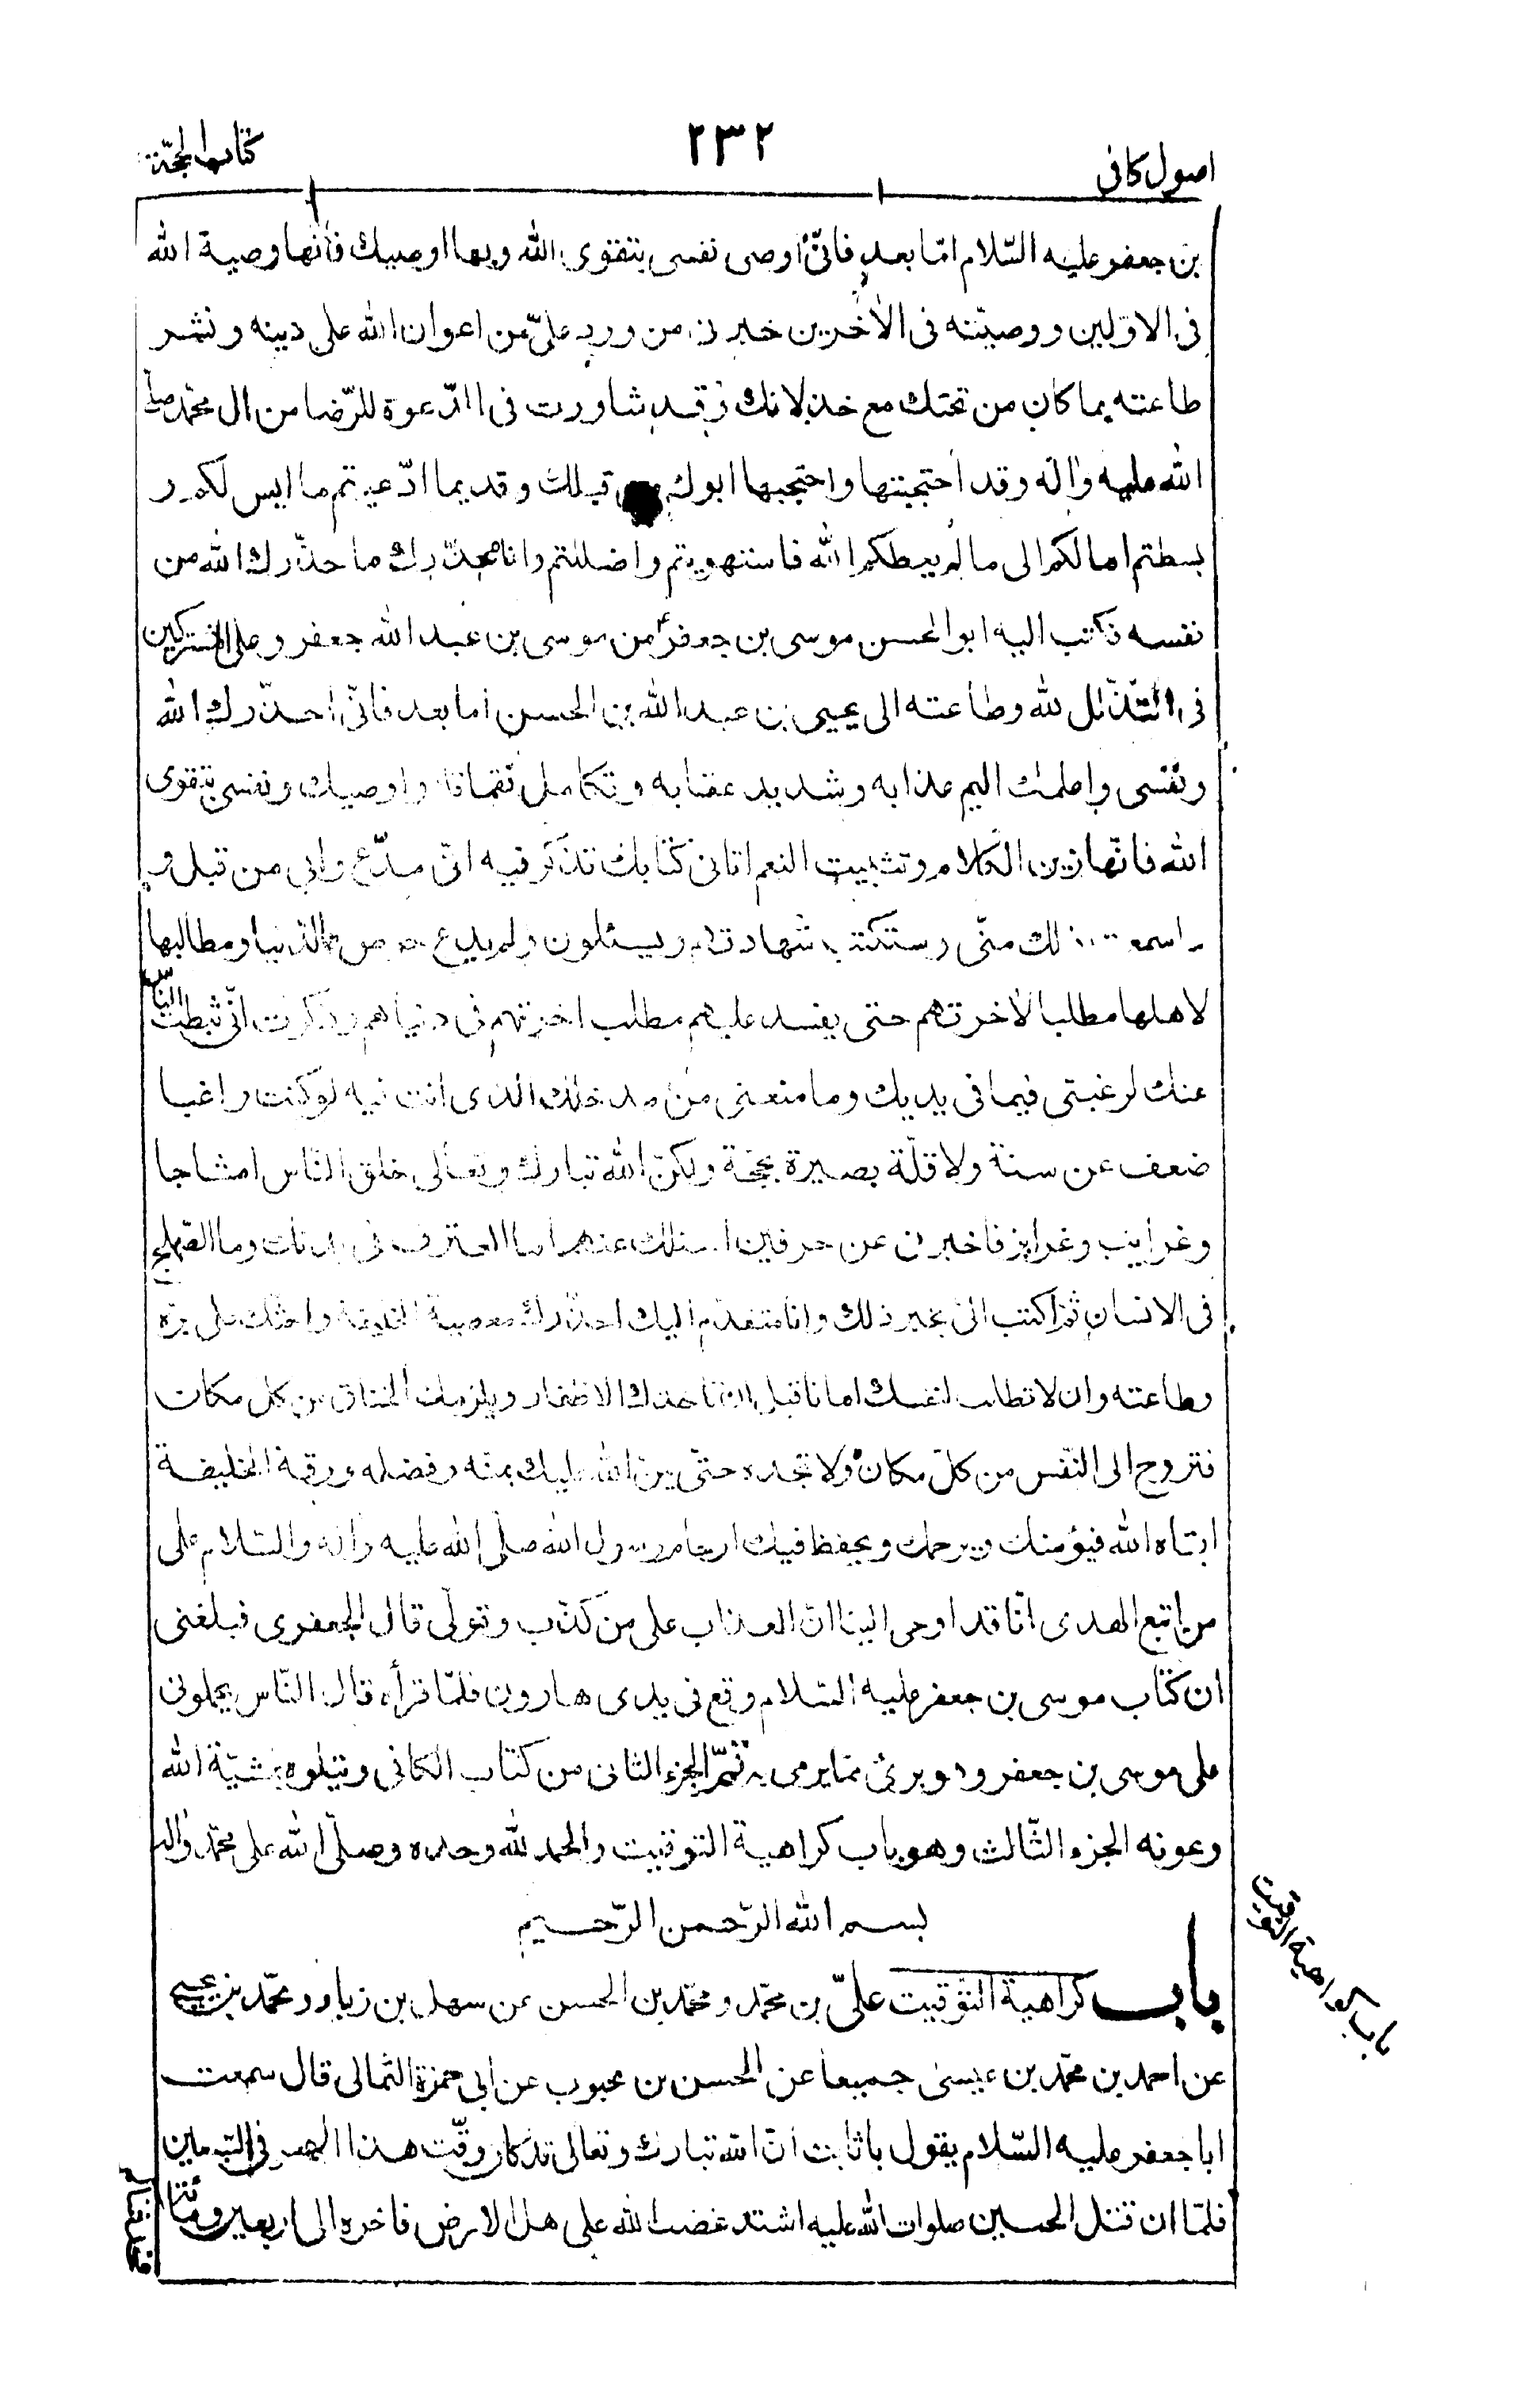 اصول كافى
٢٣٢
كتاب الحجّة
بن جعفر عليه السّلام امّا بعد فانّى اوصى نفسى بتقوى الله وبها اوصيك فانّها وصية الله
فى الاوّلين ووصيّته فى الاخرين خبرنى من ورد علىّ من اعوان الله على دينه ونشر
طاعته بما كان من تحننك مع خذلانك وقد شاورت فى الدّعوة للرّضا من ال محمّد صلى
الله عليه واله وقد احتجبتها واحتجبها ابوك من قبلك وقديما ادّعيتم ما ليس لكم و
بسطتم امالكم الى ما لم يعطكم الله فاستهويتم واضللتم وانا محذّرك ما حذّرك الله من
نفسه فكتب اليه ابو الحسن موسى بن جعفرؑ من موسى بن عبد الله جعفر وعلى المشتركين
فى التّذلّل لله وطاعته الى يحيى بن عبد الله بن الحسن اما بعد فانّى احذّرك الله
ونفسى واعلمك اليم عذابه وشديد عقابه وتكامل نقماته واوصيك ونفسى بتقوى
الله فانّها زين الكلام وتثبيت النعم اتانى كتابك تذكر فيه انّى مدّع وابى من قبل و
ما سمعت ذلك منّى وستكتب شهادتهم ويسئلون ولم يدع حرص الدّنيا ومطالبها
لاهلها مطلبا لاخرتهم حتى يفسد عليهم مطلب اخرتهم فى دنياهم وذكرت انّى ثبطت النّاس
عنك لرغبتى فيما فى يديك وما منعنى من مدخلك الذى انت فيه لو كنت راغبا
ضعف عن سنة ولا قلّة بصيرة بحجّة ولكنّ الله تبارك وتعالى خلق النّاس امشاجا
وغرايب وغرايز فاخبرنى عن حرفين اسئلك عنهما ما العترف فى بدنك وما الصّهلج
فى الانسان ثمّ اكتب الىّ بخبر ذلك وانا متقدّم اليك احذّرك معصية الخليفة واحثّك على برّه
وطاعته وان لا تطلب لنفسك امانا قبل ان تاخذك الاظفار ويلزمك الخناق من كل مكان
فتروح الى النّفس من كلّ مكان ولا تجده حتّى يمنّ الله عليك بمنّه وفضله ورقّة الخليفة
ابقاه الله فيؤمنك ويرحمك ويحفظ فيك ارحام رسول الله صلّى الله عليه واله والسّلام على
من اتبع الهدى انّا قد اوحى الينا انّ العذاب على من كذّب وتولّى قال الجعفرى فبلغنى
ان كتاب موسى بن جعفر عليه السّلام وقع فى يدى هارون فلمّا قرأه قال النّاس يحملونى
على موسى بن جعفر وهو برئ ممّا يرمى به تمّ الجزء الثانى من كتاب الكافى ويتلوه بمشيّة الله
وعونه الجزء الثّالث وهو باب كراهية التوقيت والحمد لله وحده وصلّى الله على محمّد واله
بسم الله الرّحمن الرّحيم
باب كراهية التّوقيت علىّ بن محمّد ومحمّد بن الحسن عن سهل بن زياد ومحمّد بن يحيى
عن احمد بن محمّد بن عيسى جميعا عن الحسن بن محبوب عن ابى حمزة الثمالى قال سمعت
ابا جعفر عليه السّلام يقول يا ثابت انّ الله تبارك وتعالى قد كان وقّت هذا الامر فى السّبعين
فلمّا ان قتل الحسين صلوات الله عليه اشتد غضب الله على اهل الارض فاخره الى اربعين ومائة
باب كراهية التوقيت